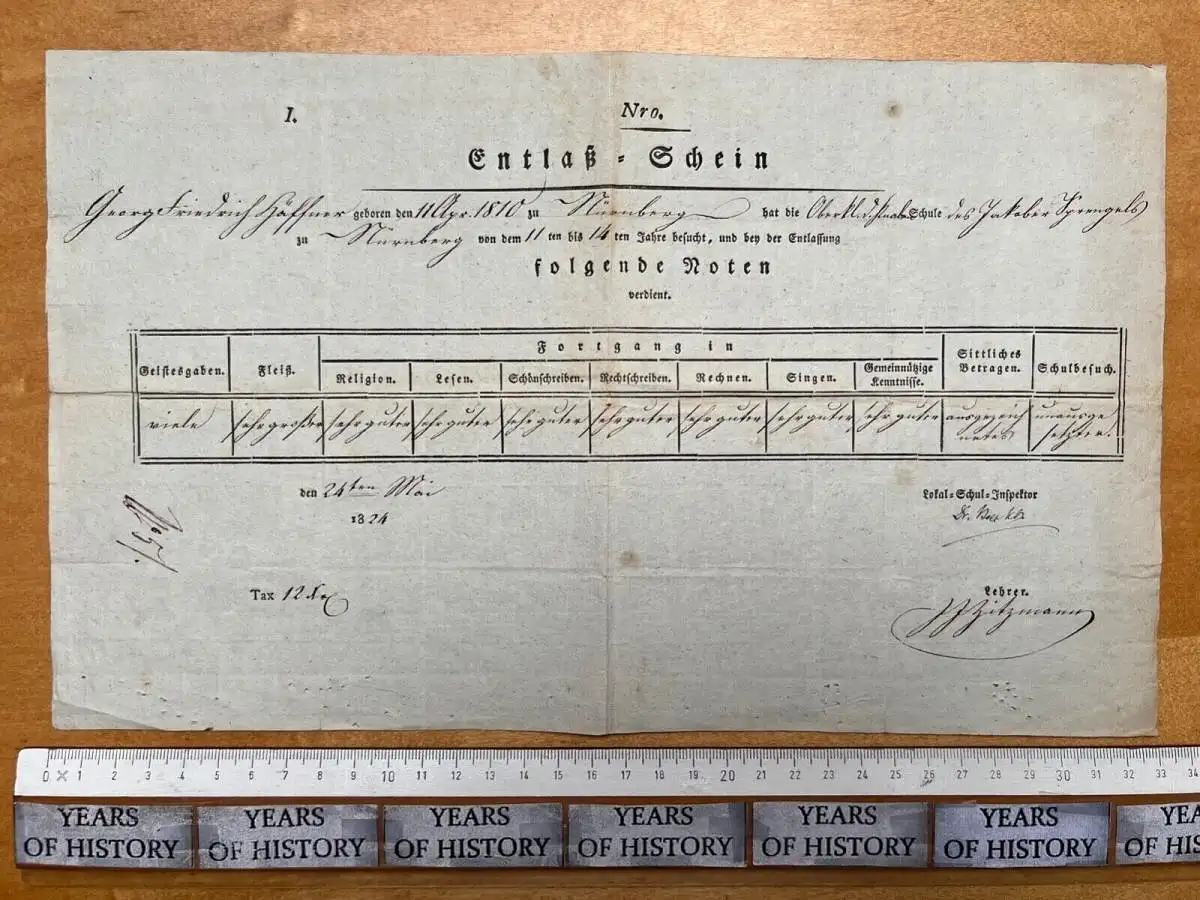 I. Nro.
Entlaß-Schein
Georg Friedrich Häffner geboren den 11 Apr. 1810 zu Nürnberg hat die Oberkl. d. Schule des Jakober Sprengels
zu Nürnberg von dem 11 ten bis 14 ten Jahre besucht, und bey der Entlassung
folgende Noten
verdient.
Fortgang in
Geistesgaben. Fleiß. Religion. Lesen. Schönschreiben. Rechtschreiben. Rechnen. Singen. Gemeinnützige Kenntnisse. Sittliches Betragen. Schulbesuch.
viele sehr großer sehr guter sehr guter sehr guter sehr guter sehr guter sehr guter sehr guter ausgezeichnetes unausgesetzter.
den 24ten Mai
1824
Lokal-Schul-Inspektor
Dr.
Tax 12
Lehrer.
Zitzmann
0 1 2 3 4 5 6 7 8 9 10 11 12 13 14 15 16 17 18 19 20 21 22 23 24 25 26 27 28 29 30 31 32 33 34
YEARS YEARS YEARS YEARS YEARS YEARS YE
OF HISTORY OF HISTORY OF HISTORY OF HISTORY OF HISTORY OF HISTORY OF HIS